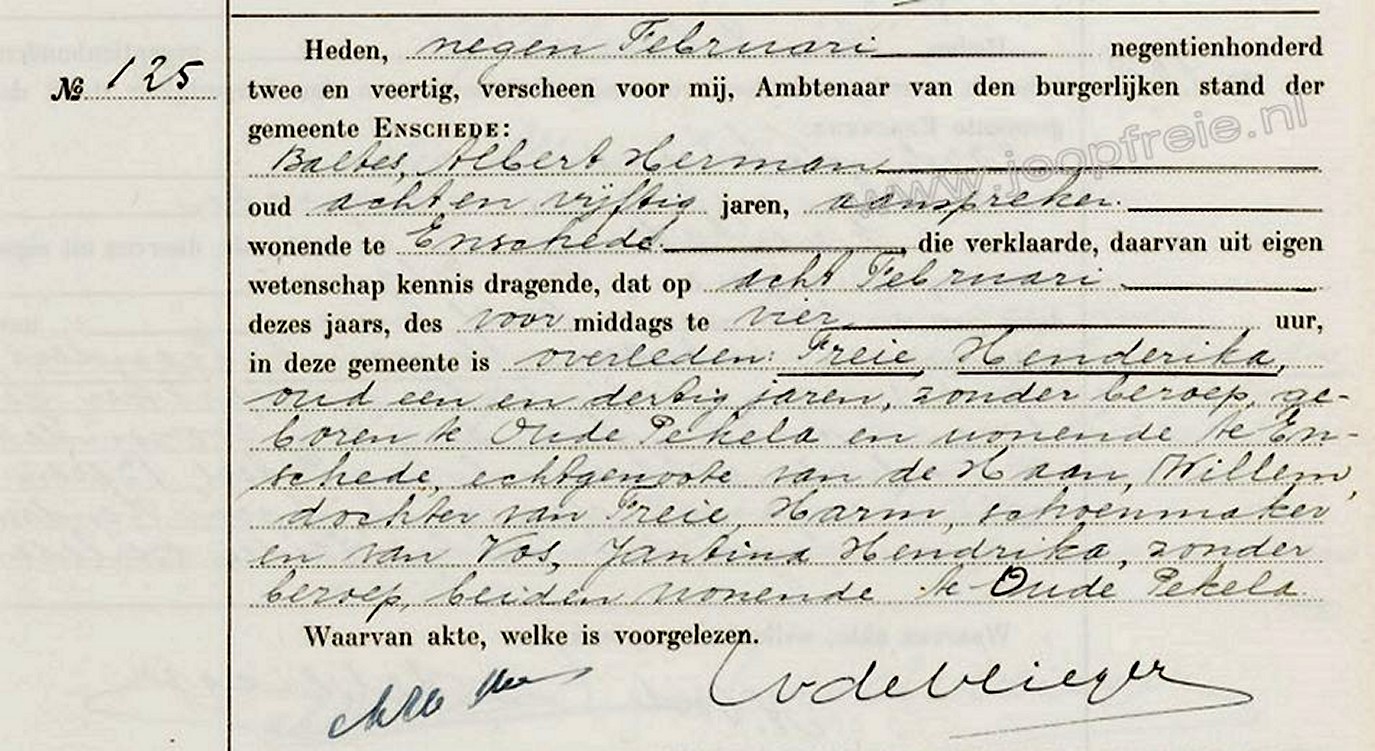 Heden, negen Februari negentienhonderd
№ 125
twee en veertig, verscheen voor mij, Ambtenaar van den burgerlijken stand der
gemeente ENSCHEDE:
www.joopfreie.nl
Baltes, Albert Herman
oud acht en vijftig jaren, aanspreker
wonende te Enschede, die verklaarde, daarvan uit eigen
wetenschap kennis dragende, dat op acht Februari
dezes jaars, des voor middags te vier uur,
in deze gemeente is overleden: Freie, Henderika,
oud een en dertig jaren, zonder beroep, ge-
boren te Oude Pekela en wonende te En-
schede, echtgenoote van de Haan, Willem,
dochter van Freie, Harm, schoenmaker
en van Vos, Jantina Hendrika, zonder
beroep, beiden wonende te Oude Pekela
Waarvan akte, welke is voorgelezen.
vdevlieger